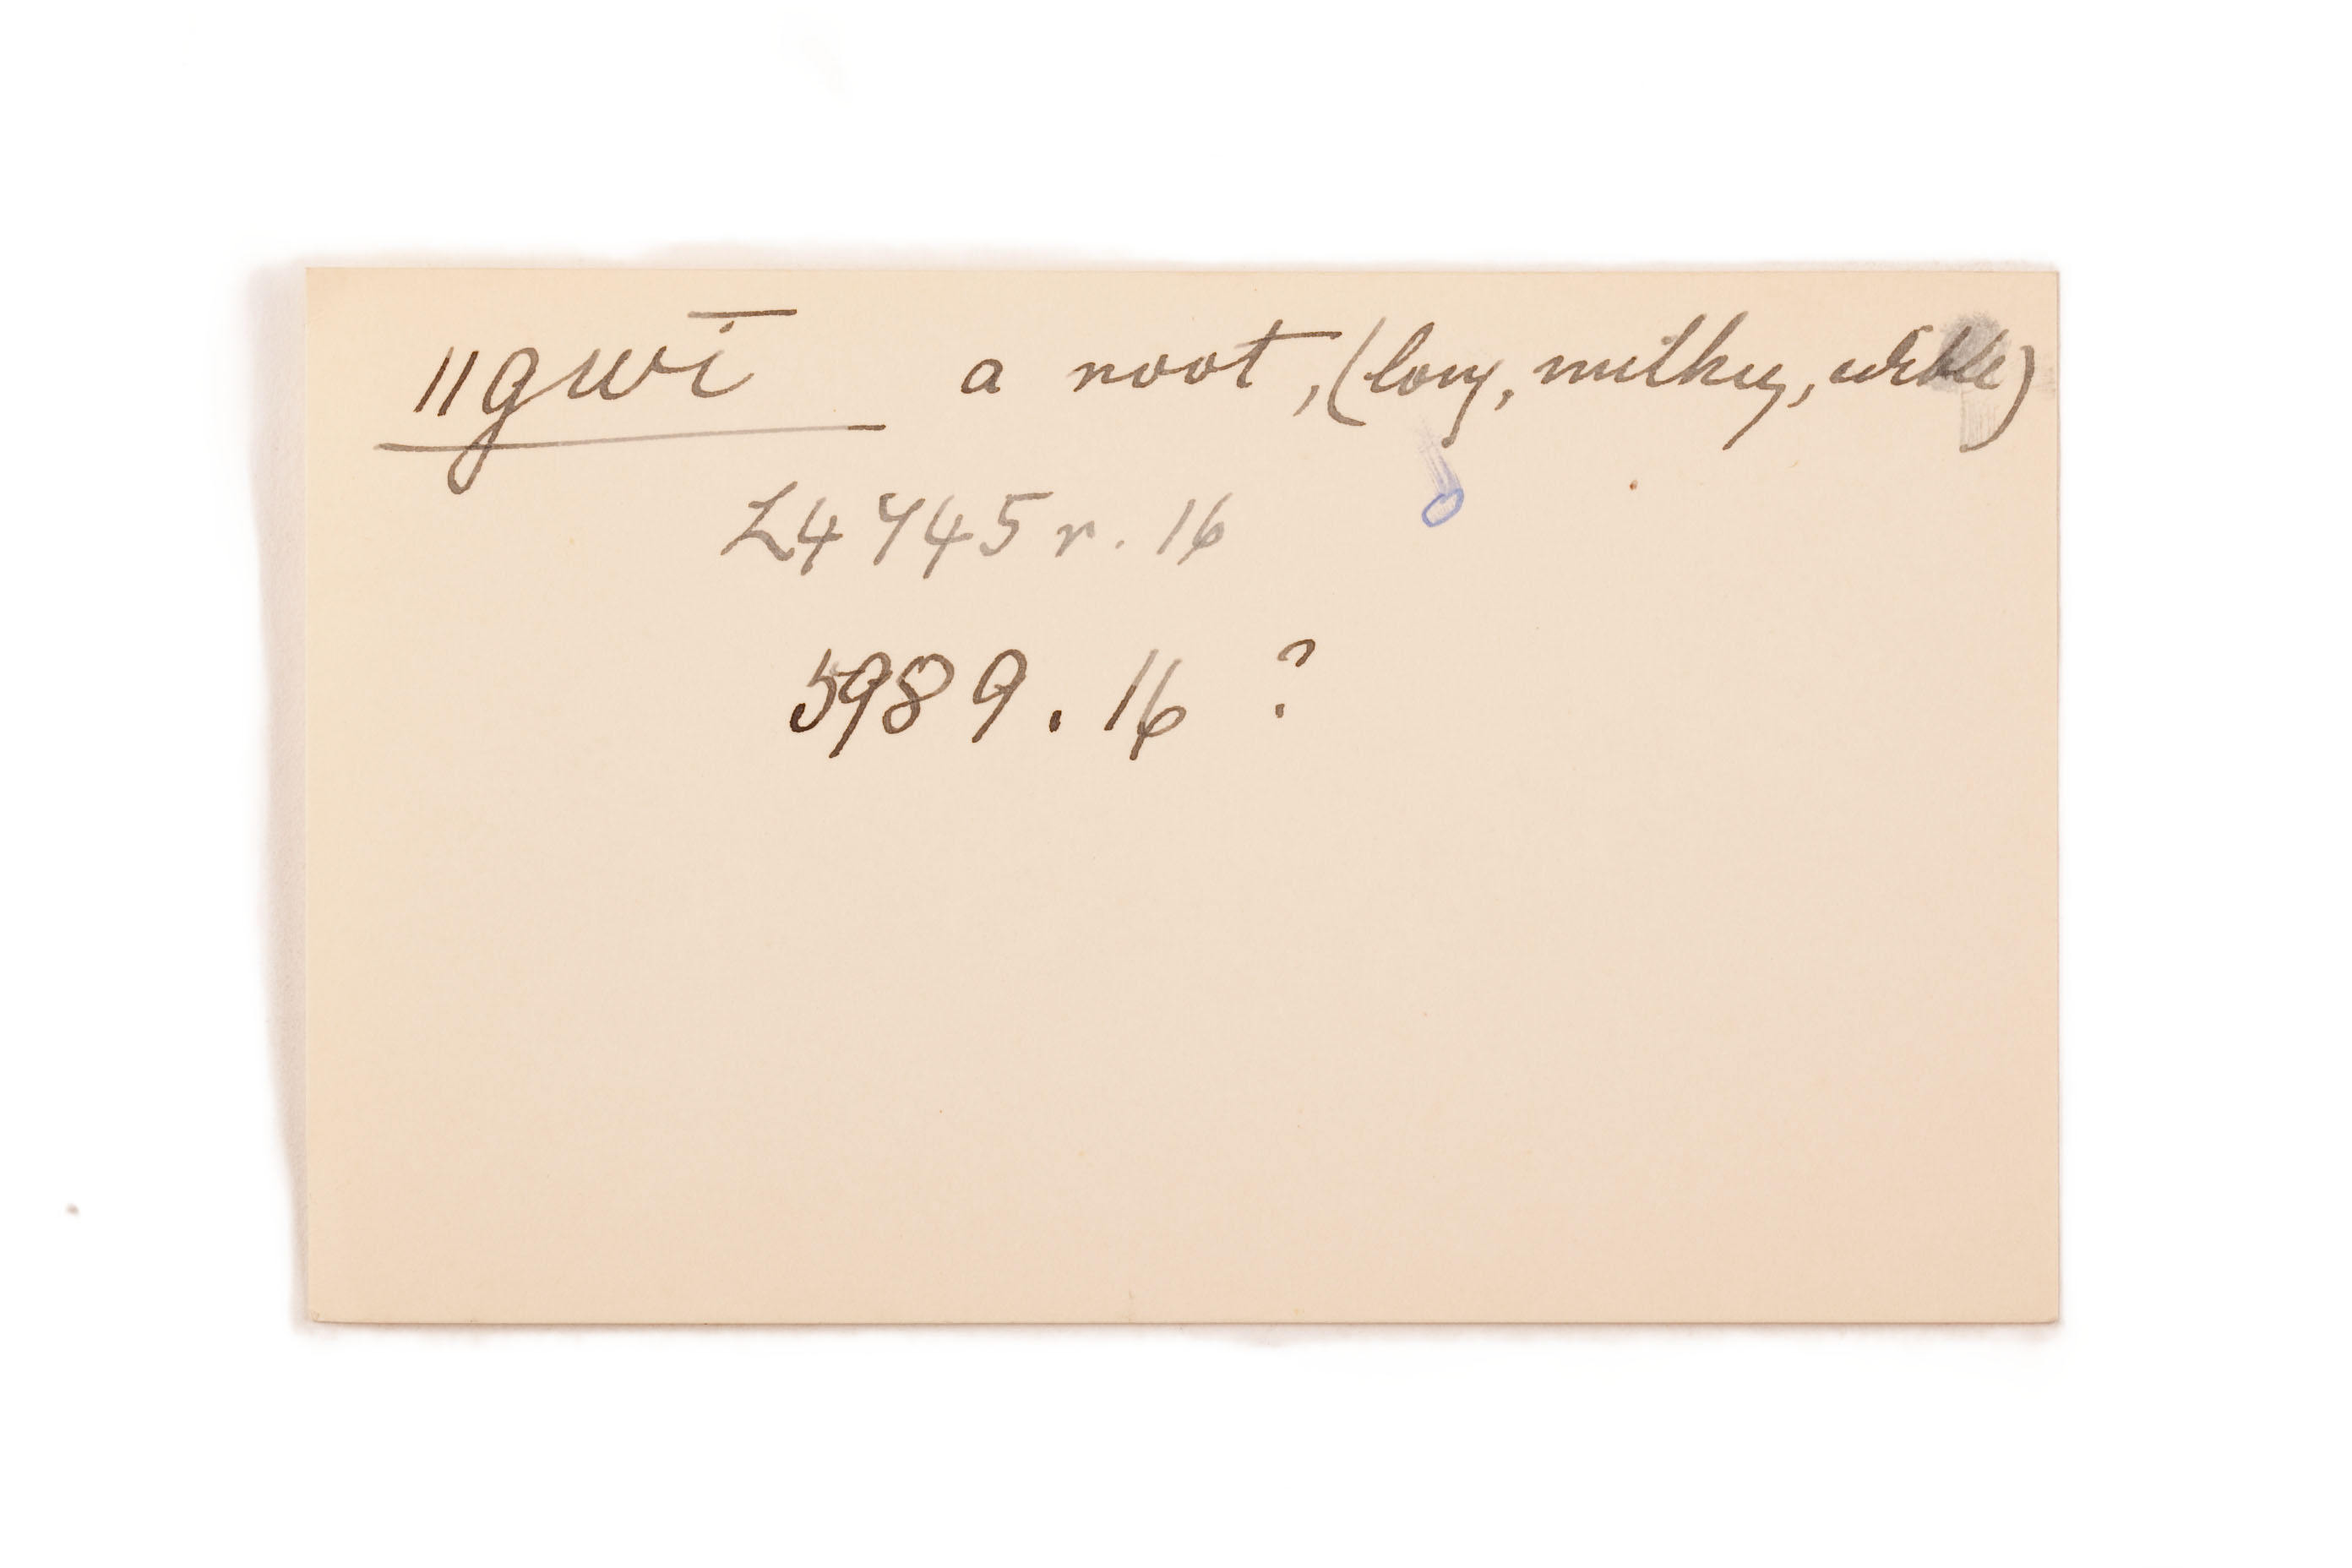 ||gwī a root, (long, milky, white)
L4745r.16
5989.16 ?